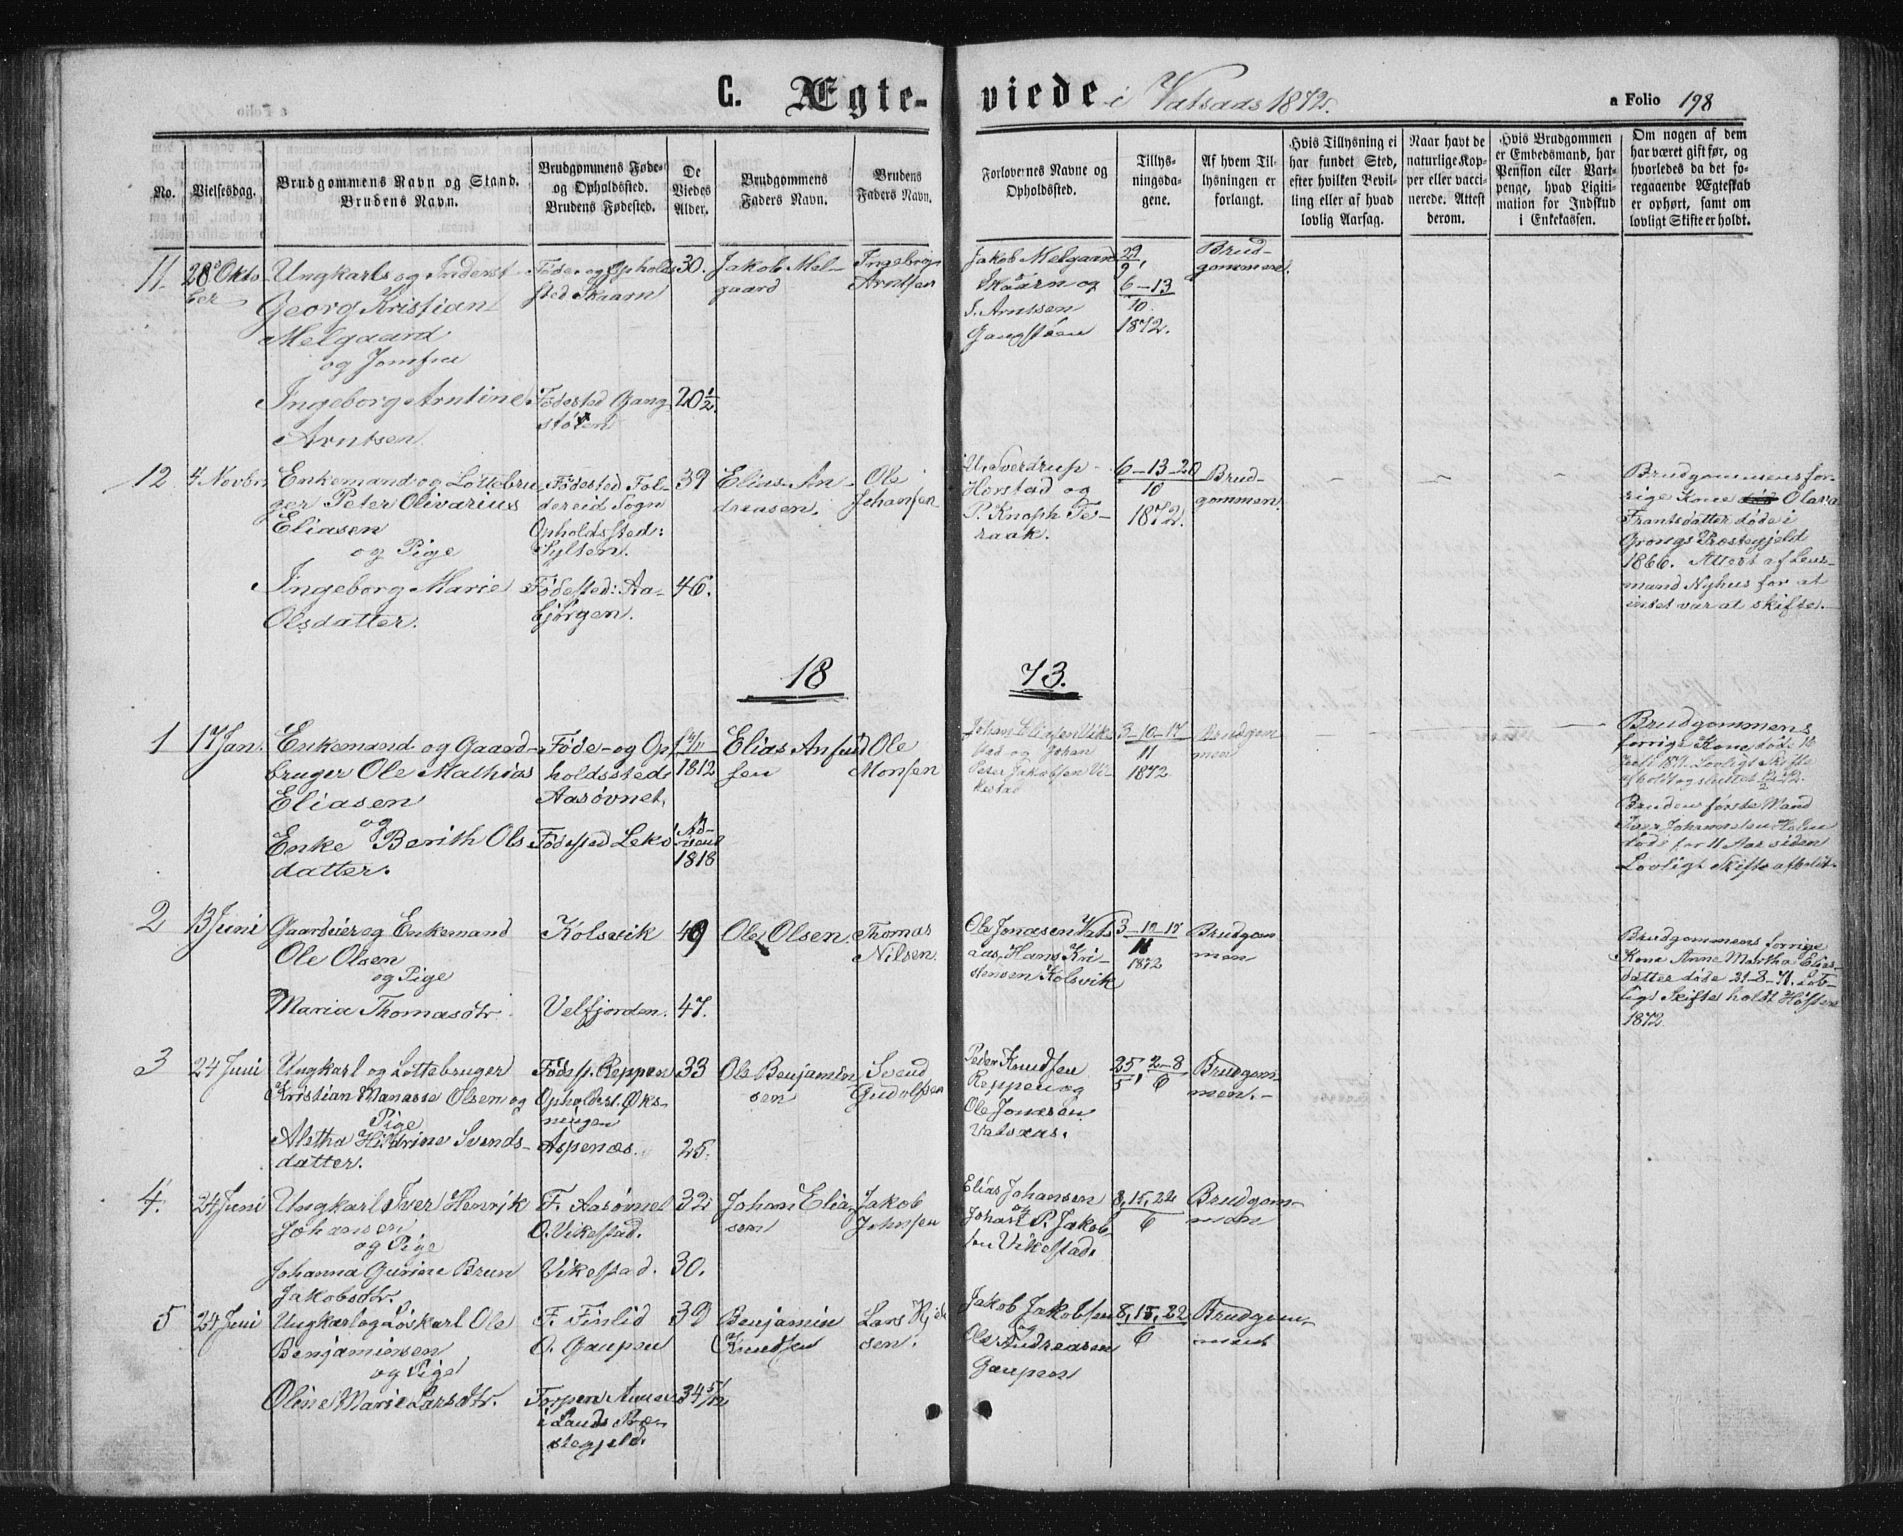 C. Ægte-viede i Vatsaas 1872.
a Folio 198
No.
Vielsesdag.
Brudgommens Navn og Stand.
Brudens Navn.
Brudgommens Føde-
og Opholdssted.
Brudens Fødested.
De
Viedes
Alder.
Brudgommens
Faders Navn.
Brudens
Faders Navn.
Forlovernes Navne og
Opholdssted.
Tillys-
ningsda-
gene.
Af hvem Til-
lysningen er
forlangt.
Hvis Tillysning ei
har fundet Sted,
efter hvilken Bevil-
ling eller af hvad
lovlig Aarsag.
Naar havt de
naturlige Kop-
per eller vacci-
nerede. Attest
derom.
Hvis Brudgommen
er Embedsmand, har
Pension eller Vart-
penge, hvad Ligiti-
mation for Indskud
i Enkekassen.
Om nogen af dem
har været gift før, og
hvorledes da det fo-
regaaende Ægteskab
er ophørt, samt om
lovligt Skifte er holdt.
11.
28de Okto
ber
Ungkarls og Inderst
Georg Kristian
Melgaard
og Jomfru
Ingeborg Arntine
Arntsen
Føde- og Opholds
sted Skaarn
Fødested Gang
støen
30.
20 1/2
Jakob Mel-
gaard
Ingebrgn
Arntsen
Jakob Melgaard
Skaarn og
I. Arntsen
Gangstøen
29/9,
6-13
10.
1872.
Brud-
gommen.
12
4 Novbr.
Enkemand og Lottebru
ger Peter Olivarius
Eliasen
og Pige
Ingeborg Marie
Olsdatter.
Fødested Fol-
dereid Sogn
Opholdssted:
Sylsen.
Fødested: Aa-
bjørgen.
39
46.
Elias An-
dreasen.
Ole
Johansen
U. Sverdrup
Horstad og
P. Knoph Te-
raak.
6-13-20
10
1872.
Brud-
gommen.
Brudgommens for-
rige Kone Olava
Frantsdatter døde i
Grongs Præstegjeld
1866. Attest af Lens-
mand Nyhus for at
intet var at skifte.
1873.
1
17 Jan.
Enkemand og Gaard-
bruger Ole Mathias
Eliasen
og
Enke Berith Ols
datter.
Føde- og Op-
holdssted
Aasøvnet.
Fødested Lekø
1812
Ad-
vent
1818
Elias Anfind
sen
Ole
Monsen
Johan Eliasen Vike
stad og Johan
Peter Jakobsen Vi-
kestad
3-10-17
11
1872.
Brudgom
men
Brudgommens
forrige Kone døde
1871. Lovligt Skifte
afholdt og sluttet
Brudens første Mand
Iver Johannesen Holm
døde for 11 Aar siden
Lovligt Skifte afholdt.
2
13 Juni
Gaardeier og Enkemand
Ole Olsen
og Pige
Maria Thomasdtr.
Kolsvik
Velfjorden.
49
47.
Ole Olsen.
Thomas
Nilsen.
Ole Jonasen Vats
aas, Hans Kri-
stensen Kolsvik
3-10-17
11
1872
Brudgom
men
Brudgommens forrige
Kone Anne Martha Elias
datter døde 21-8-71. Lov-
ligt Skifte holdt Høsten
1872.
3
24 Juni
Ungkarl og Lottebruger
Kristian Manasse Olsen og
Pige
Aletha Hildrine Svends-
datter.
Fødesp. Reppen
Opholdst. Øks-
ningen
Aspenæs.
33
25.
Ole Benjamin
sen
Svend
Gudolfsen
Peder Knudsen
Reppen og
Ole Jonasen
Vatsaas.
25/5, 2-8/6
Brudgom-
men.
4.
24 Juni
Ungkarl Iver Henrik
Johansen
og Pige
Johanna Gurine Brun
Jakobsdtr.
F. Aasøvnet
O. Vikestad.
Vikestad.
32
30.
Johan Elia-
sen
Jakob
Johnsen
Elias Johansen
og
Johan P. Jakob
sen Vikestad.
8, 15, 22
6
Brudgom-
men
5
24 Juni
Ungkarl og Løskarl Ole
Benjaminsen
og Pige
Oline Marie Larsdtr.
F. Finlid
O. Gaupen
Torpen Annex
i Lands Præ-
stegjeld.
39
34 5/12
Benjamin
Knudsen
Lars
sen.
Jakob Jakobsen
og
Ole Andreasen
Gaupen
8, 15, 22
6
Brudgom-
men